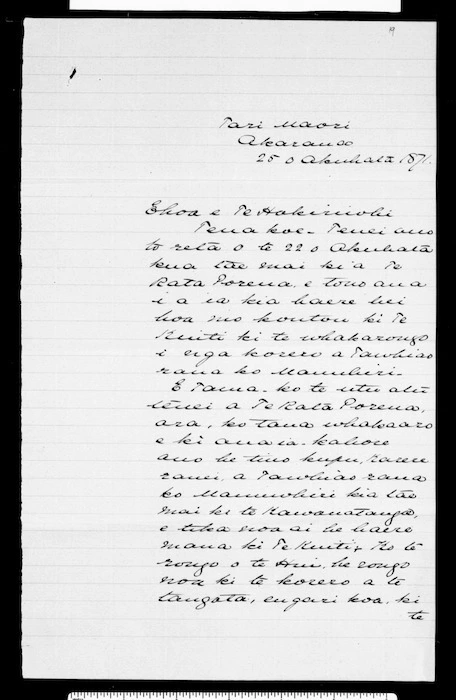 Tari Maori
Akarana
25 o Akuhata 1871.
Ehoa e Te Hakiriwhi
Tena koe - Tenei ano
to reta o te 22 o Akuhata
kua tae mai ki a Te
Rata Porena, e tono ana
i a ia kia haere hei
hoa mo koutou ki Te
Kuiti ki te whakarongo
i nga korero a Tawhiao
raua ko Manuhiri.
E Tama - ko te utu atu
tenei a Te Rata Porena,
ara, ko tana whakaaro
e ki ana ia - kahore
ano he tino kupu, karere
ranei, a Tawhiao raua
ko Manuwhiri kia tae
mai ki te Kawanatanga,
e tika noa ai he haere
mana ki Te Kuiti, Ko te
rongo o te Hui, he rongo
noa ki te korero a te
tangata, engari koa, ki
te